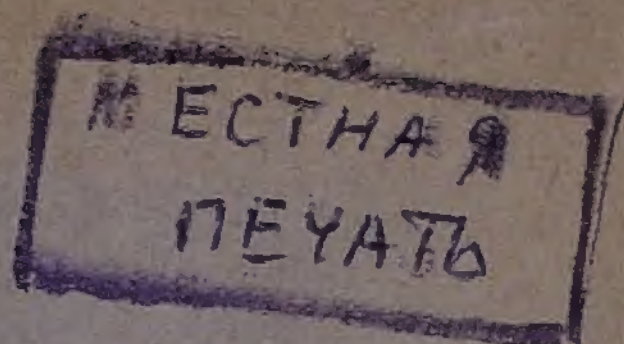 МЕСТНАЯ
ПЕЧАТЬ